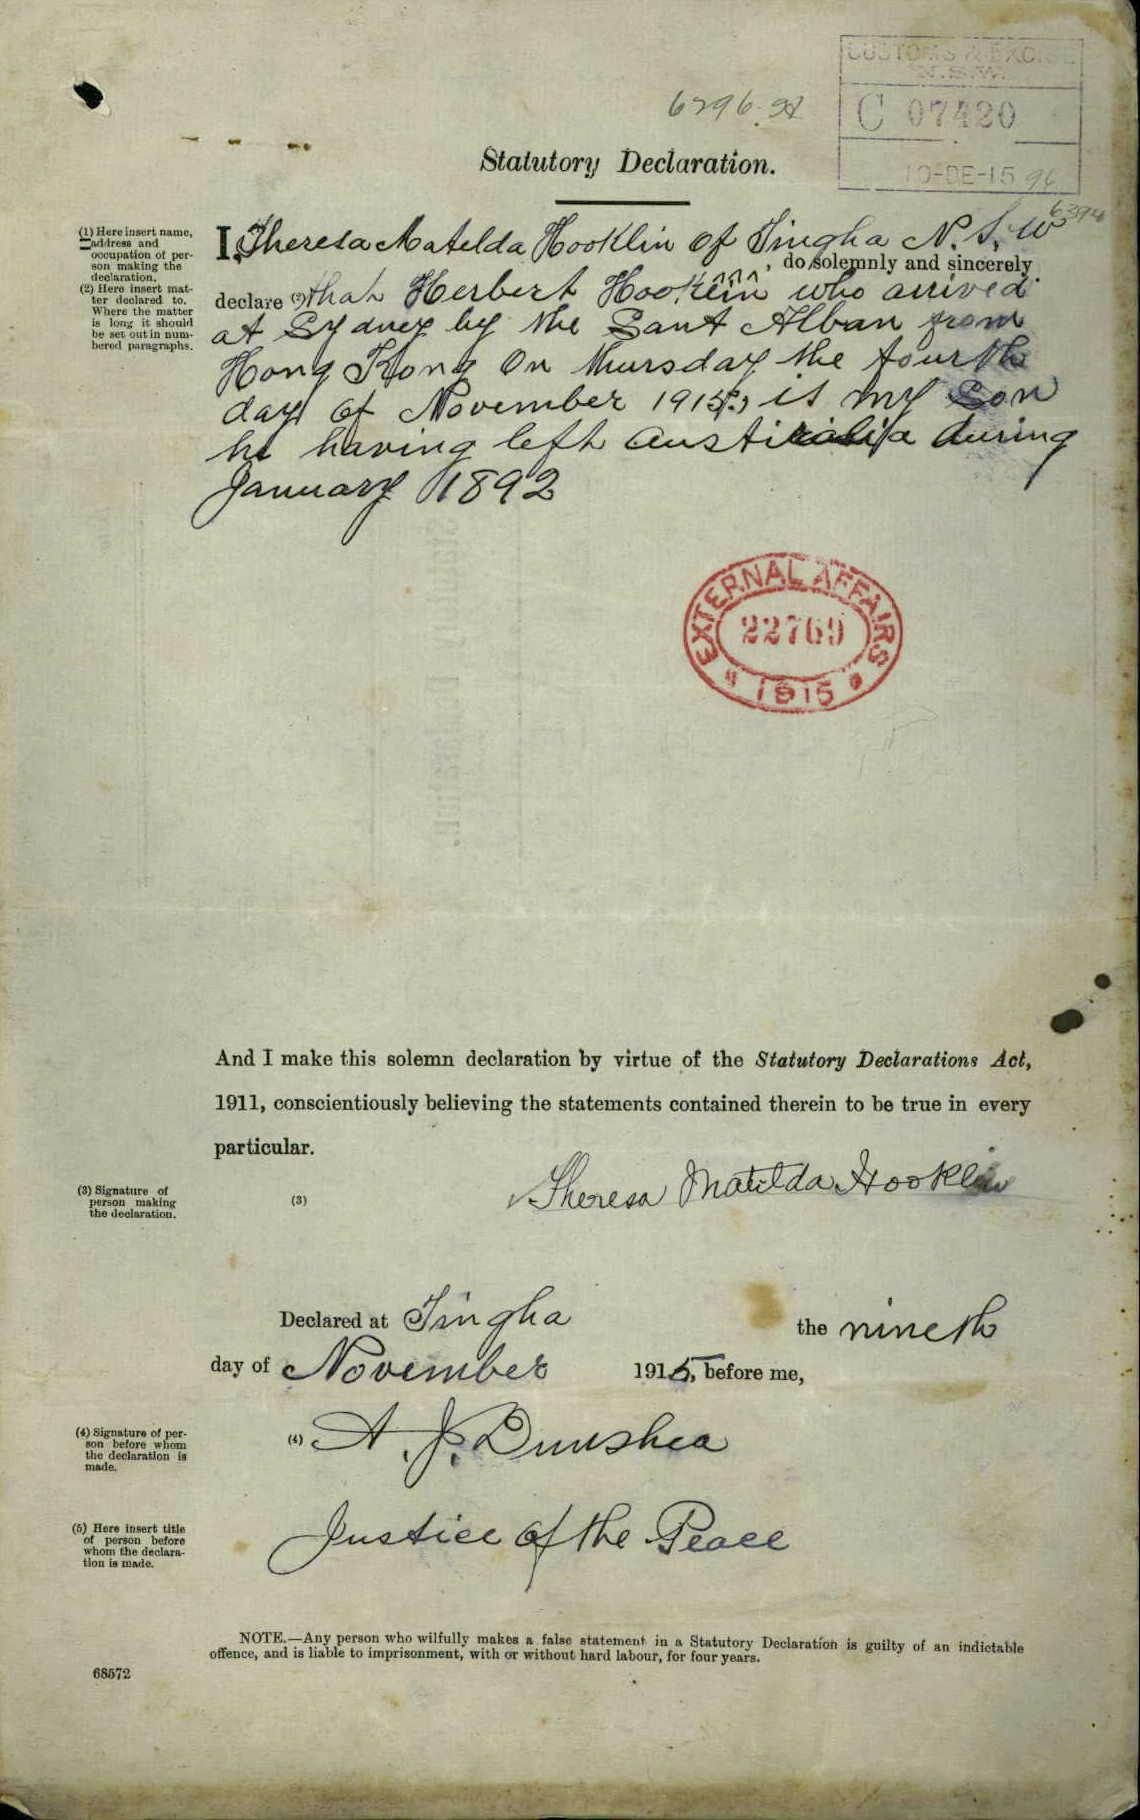 CUSTOMS & EXCISE
N.S.W.
C 07420
10-DE-15
Statutory Declaration.
(1) Here insert name,
address and
occupation of per-
son making the
declaration.
(2) Here insert mat-
ter declared to.
Where the matter
is long it should
be set out in num-
bered paragraphs.
I, Theresa Matilda Hooklin of Tingha N.S.W
do solemnly and sincerely
declare (2) that Herbert Hooklin who arrived
at Sydney by the Saint Alban from
Hong Kong On thursday the fourth
day of November 1915 is my Son
he having left Australia during
January 1892
EXTERNAL AFFAIRS
22769
1915
And I make this solemn declaration by virtue of the Statutory Declarations Act,
1911, conscientiously believing the statements contained therein to be true in every
particular.
(3) Signature of
person making
the declaration.
(3) Theresa Matilda Hooklin
Declared at Tingha the nineth
day of November 1915, before me,
(4) Signature of per-
son before whom
the declaration is
made.
(4) A. J. Dunshea
(5) Here insert title
of person before
whom the declara-
tion is made.
Justice of the Peace
NOTE.—Any person who wilfully makes a false statement in a Statutory Declaration is guilty of an indictable
offence, and is liable to imprisonment, with or without hard labour, for four years.
68572